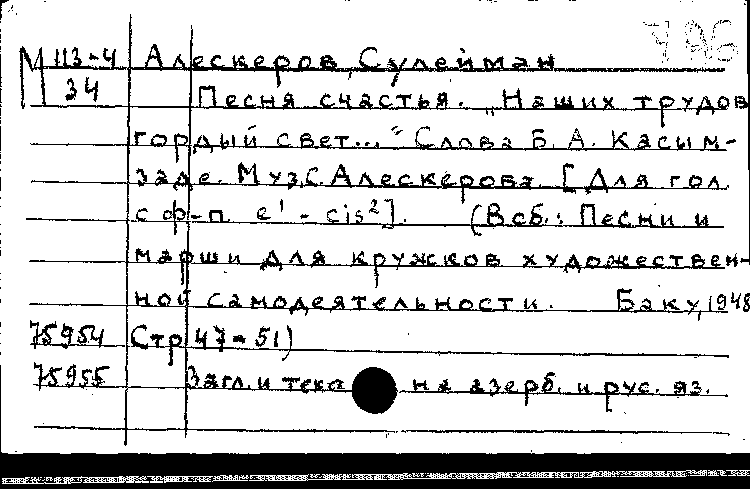 М 113-4 Алескеров, Сулейман
34 Песня счастья. „Наших трудов
гордый свет..." Слова Б. А. Касым-
заде. Муз. С. Алескерова. [Для гол.
с ф-п. e¹ - cis²]. (В сб.: Песни и
марши для кружков художествен-
ной самодеятельности. Баку, 1948
75954 Стр 47-51)
75955 Загл. и текс на азерб. и рус. яз.